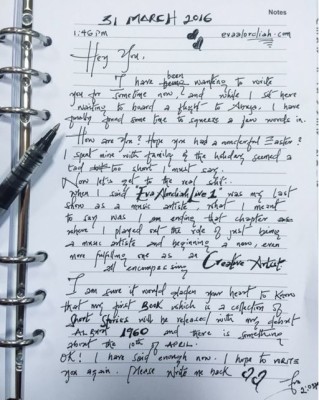 31 MARCH 2016
Notes
1:46pm evaalordiah.com
Hey You.
I have been wanting to write
you for sometime now, and while I sit here
waiting to board a flight to Abuja, I have
finally found some time to squeeze a few words in.
How are you? Hope you had a wonderful Easter?
I spent mine with family & the holidays seemed a
tad too short I must say.
Now let's get to the real shit.
When I said Eva Alordiah Live 1 was my last
show as a music artiste, what I meant
to say was I am ending that chapter
where I played out the role of just being
a music artiste and beginning a new, even
more fulfilling one as an
all encompassing Creative Artist
I am sure it would gladden your heart to know
that my first Book which is a collection of
Short Stories will be released with my debut
Album 1960 and there is something
about the 10th of APRIL.
OK! I have said enough now. I hope to WRITE
you again. Please write me back
Eva 2:05pm